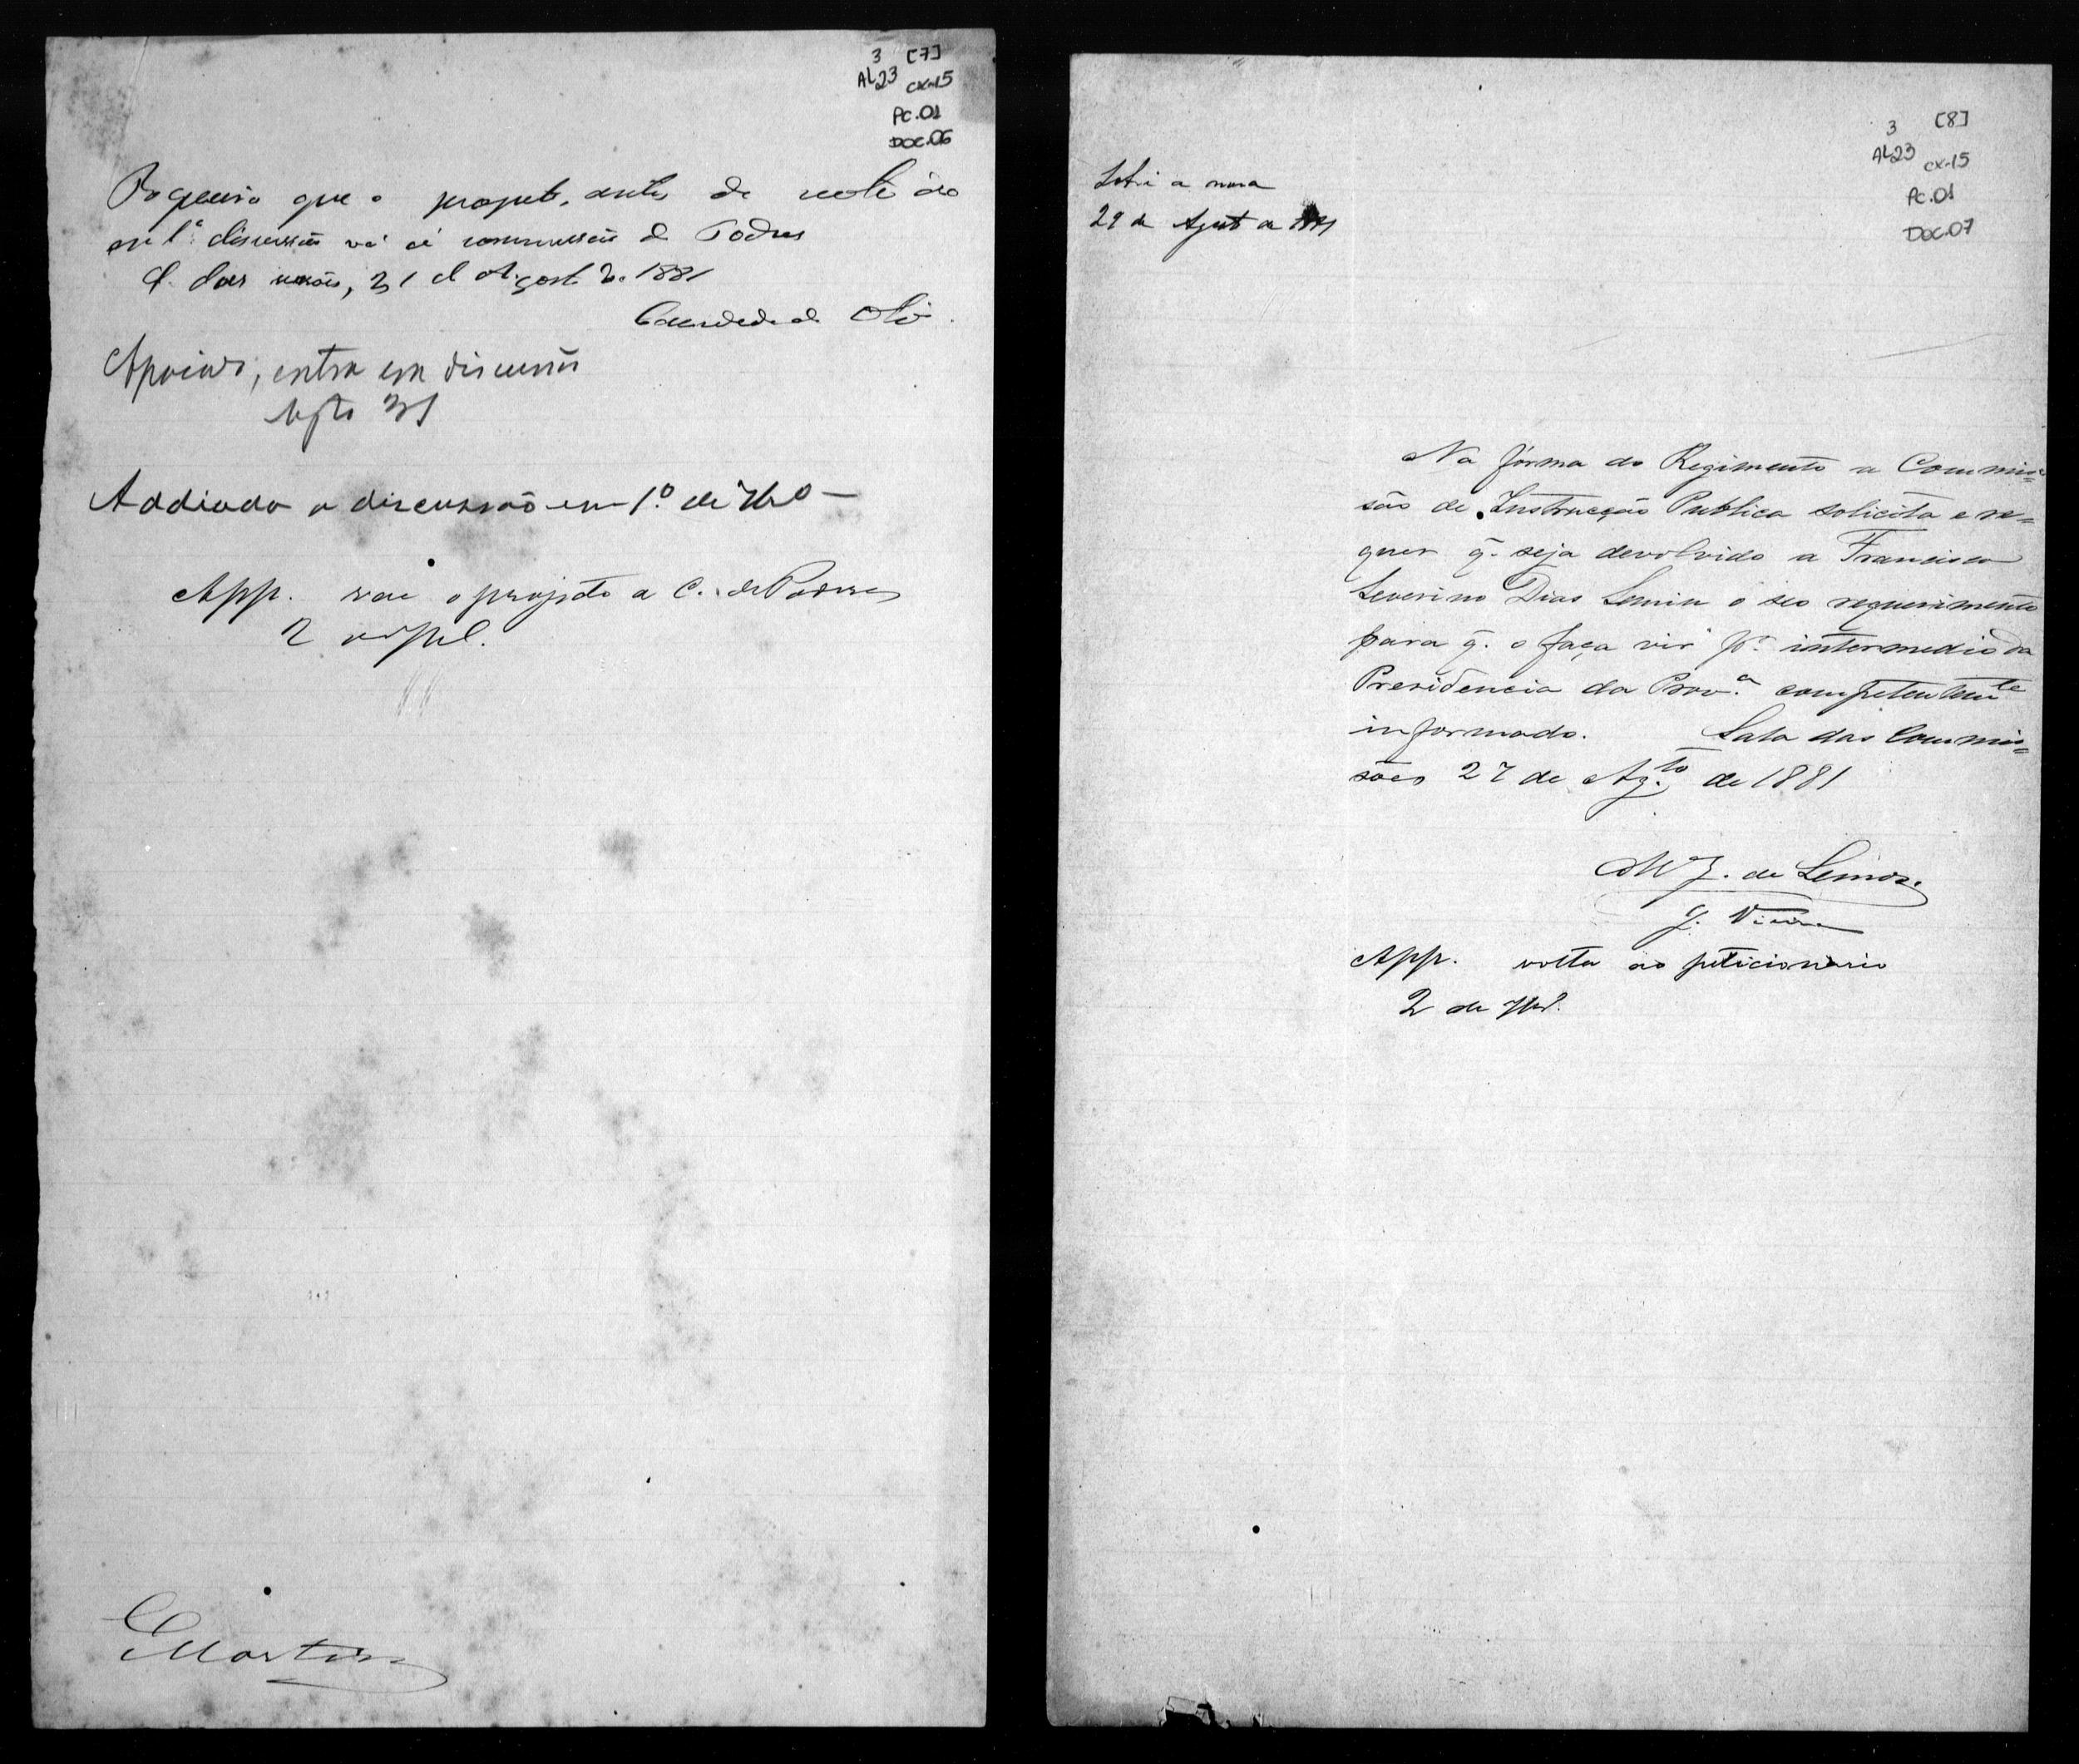 3 [7]
AL23 cx-15
PC.01
DOC.06
Requeiro que o projecto, antes de
em 1ª discussão vá á commissão de Podres
S. das sessões, 31 d Agosto de 1881
Apoiado, entra em discussão
Agto 31
Addiada a discussão em 1º de 7bro
App. vae o projeto a C. de Podres
2
Martins
3 [8]
AL23 cx-15
PC.01
DOC.07
Sobre a mesa
29 de Agosto de 1881
Na fórma do Regimento a Commis=
são de Instrucção Publica solicita e re=
quer q. seja devolvido a Francisco
Severino Dias o seo requerimento
para q. o faça vir pr. intermedio da
Presidencia da Prov.ª competentemte
informado. Sala das Commis=
sões 27 de Ag.to de 1881
M J. de Lemos.
J. Vieira
App. volta ao peticionario
2 de 7br.